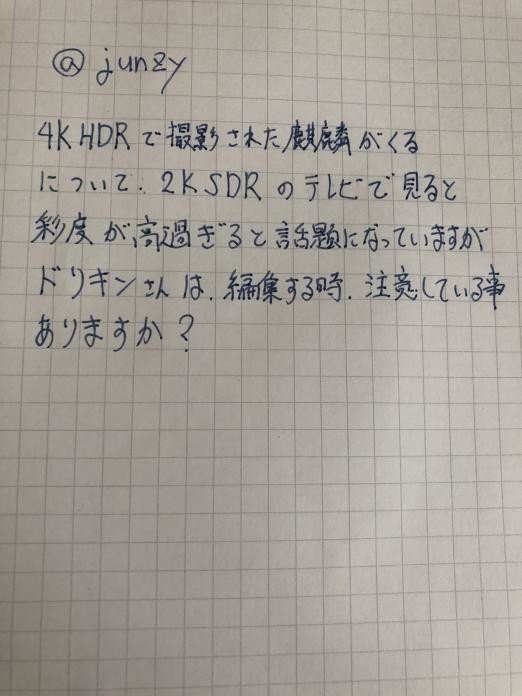 @junzy
4K HDRで撮影された麒麟がくる
について. 2K SDRのテレビで見ると
彩度が高過ぎると話題になっていますが
ドリキンさんは. 編集する時. 注意している事
ありますか？